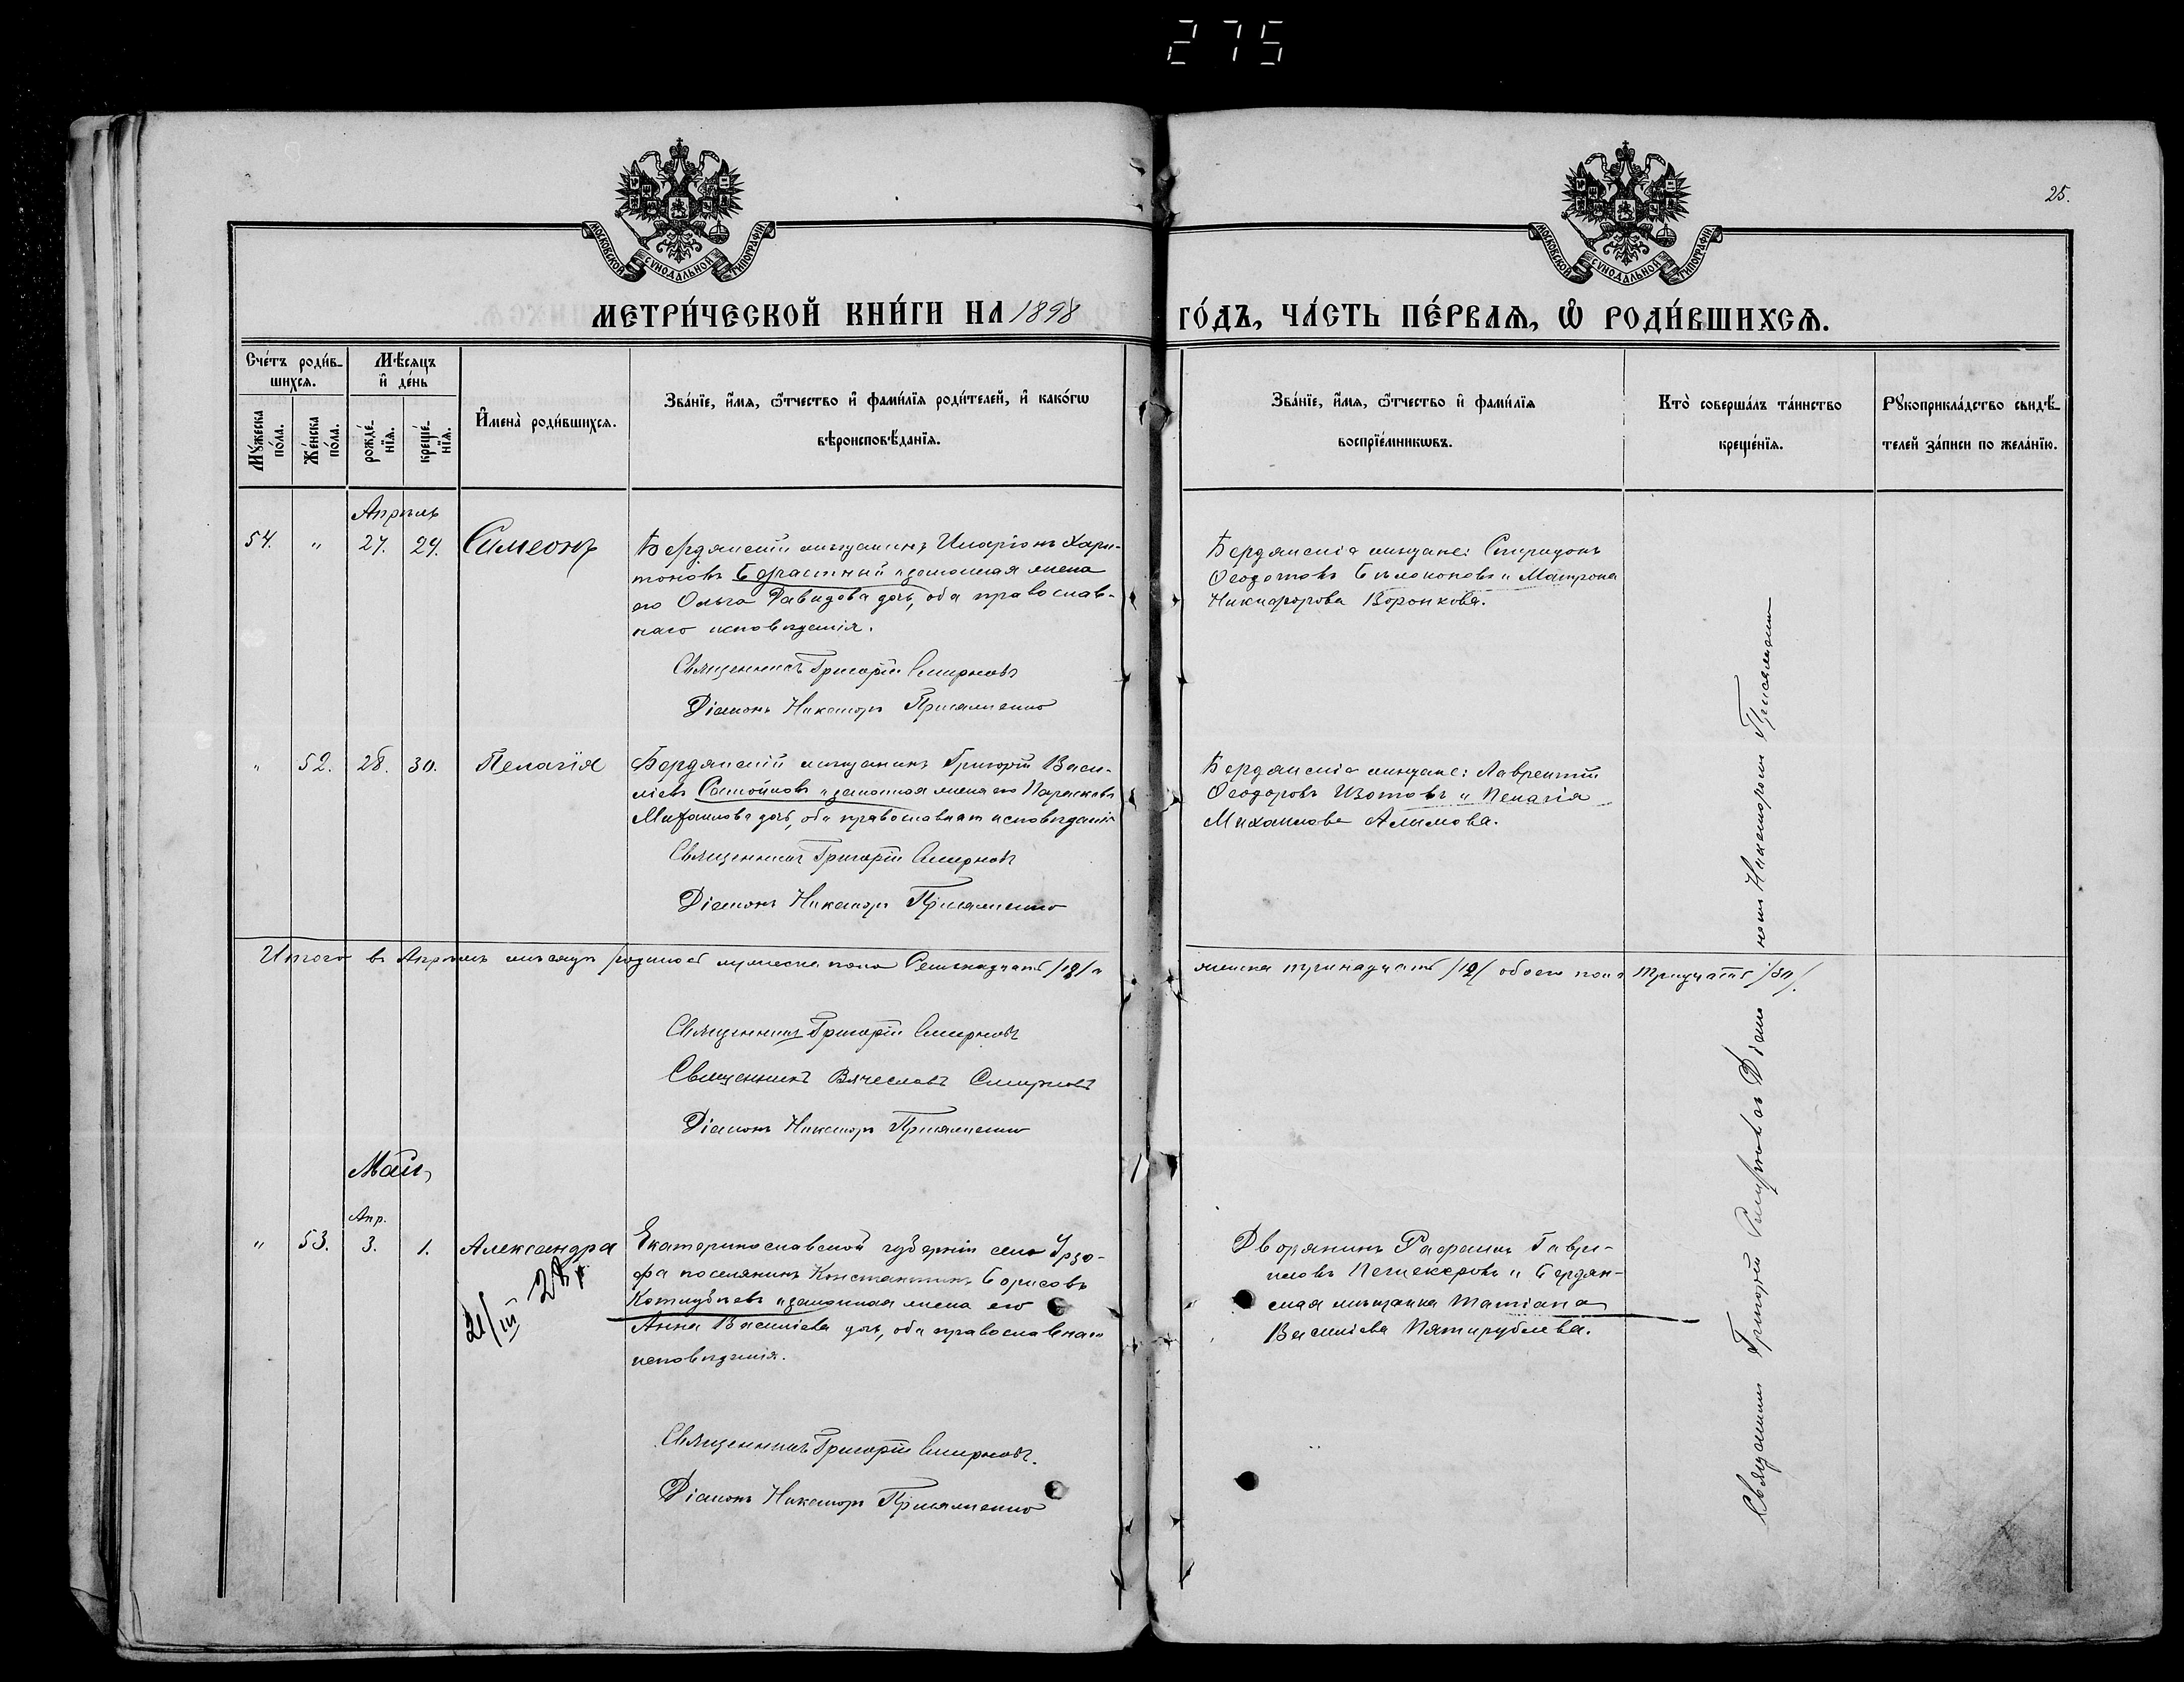 275
25.
МОСКОВСКОЙ СѴНОДАЛЬНОЙ ТИПОГРАФІИ
МОСКОВСКОЙ СѴНОДАЛЬНОЙ ТИПОГРАФІИ
МЕТРИ́ЧЕСКОЙ КНИ́ГИ НА 1898 ГО́ДЪ, ЧА́СТЬ ПЕ́РВАѦ, Ѡ҆ РОДИ́ВШИХСѦ.
Сче́тъ роди́в-
шихсѧ.
Мꙋ́жеска по́ла.
Же́нска по́ла.
Мѣ́сѧцъ
и҆ де́нь
рожде́-
нїѧ.
креще́-
нїѧ.
И҆мена̀ роди́вшихсѧ.
Зва́нїе, и҆́мѧ, ѻ҆́тчество и҆ фами́лїѧ роди́телей, и҆ како́гѡ
вѣроисповѣ́данїѧ.
Зва́нїе, и҆́мѧ, ѻ҆́тчество и҆ фами́лїѧ
воспрїе́мникѡвъ.
Кто̀ соверша́лъ та́инство
креще́нїѧ.
Рꙋкоприкла́дство свидѣ́-
телей за́писи по жела́нїю.
Апрѣль
54. " 27. 29. Симеонъ
Бердянскій мѣщанинъ Иларіонъ Хари-
тоновъ и законная жена
его Ольга Давидова дочь, оба православ-
наго исповѣданія.
Священникъ Григорій Смирновъ
Діаконъ Никаноръ Присяженко
Бердянскіе мѣщане: Спиридонъ
Ѳеодотовъ Бѣлоконовъ и Матрона
Никифорова Воронкова.
" 52. 28. 30. Пелагія
Бердянскій мѣщанинъ Григорій Васи-
ліевъ Самойловъ и законная жена его Параскева
Михаилова дочь, оба православнаго исповѣданія
Священникъ Григорій Смирновъ
Діаконъ Никаноръ Присяженко
Бердянскіе мѣщане: Лаврентій
Ѳеодоровъ Изотовъ и Пелагія
Михаилова Алимова.
Итого въ Апрѣлѣ мѣсяцѣ родилось мужеска пола и
женска тринадцать обоего пола тридцать /30/.
Священникъ Григорій Смирновъ
Священникъ Вячеславъ Смирновъ
Діаконъ Никаноръ Присяженко
Май,
Апр.
" 53. 3. 1. Александра
21/III
Екатеринославской губерніи села Урзу-
фа поселянинъ Константинъ Борисовъ
и законная жена его
Анна Василіева дочь, оба православнаго
исповѣданія.
Священникъ Григорій Смирновъ.
Діаконъ Никаноръ Присяженко
Дворянинъ Рафаилъ Гаври-
иловъ и Бердян-
ская мѣщанка Татіана
Василіева Пятирублева.
Священникъ Григорій Смирновъ съ Діакономъ Никаноромъ Присяженко